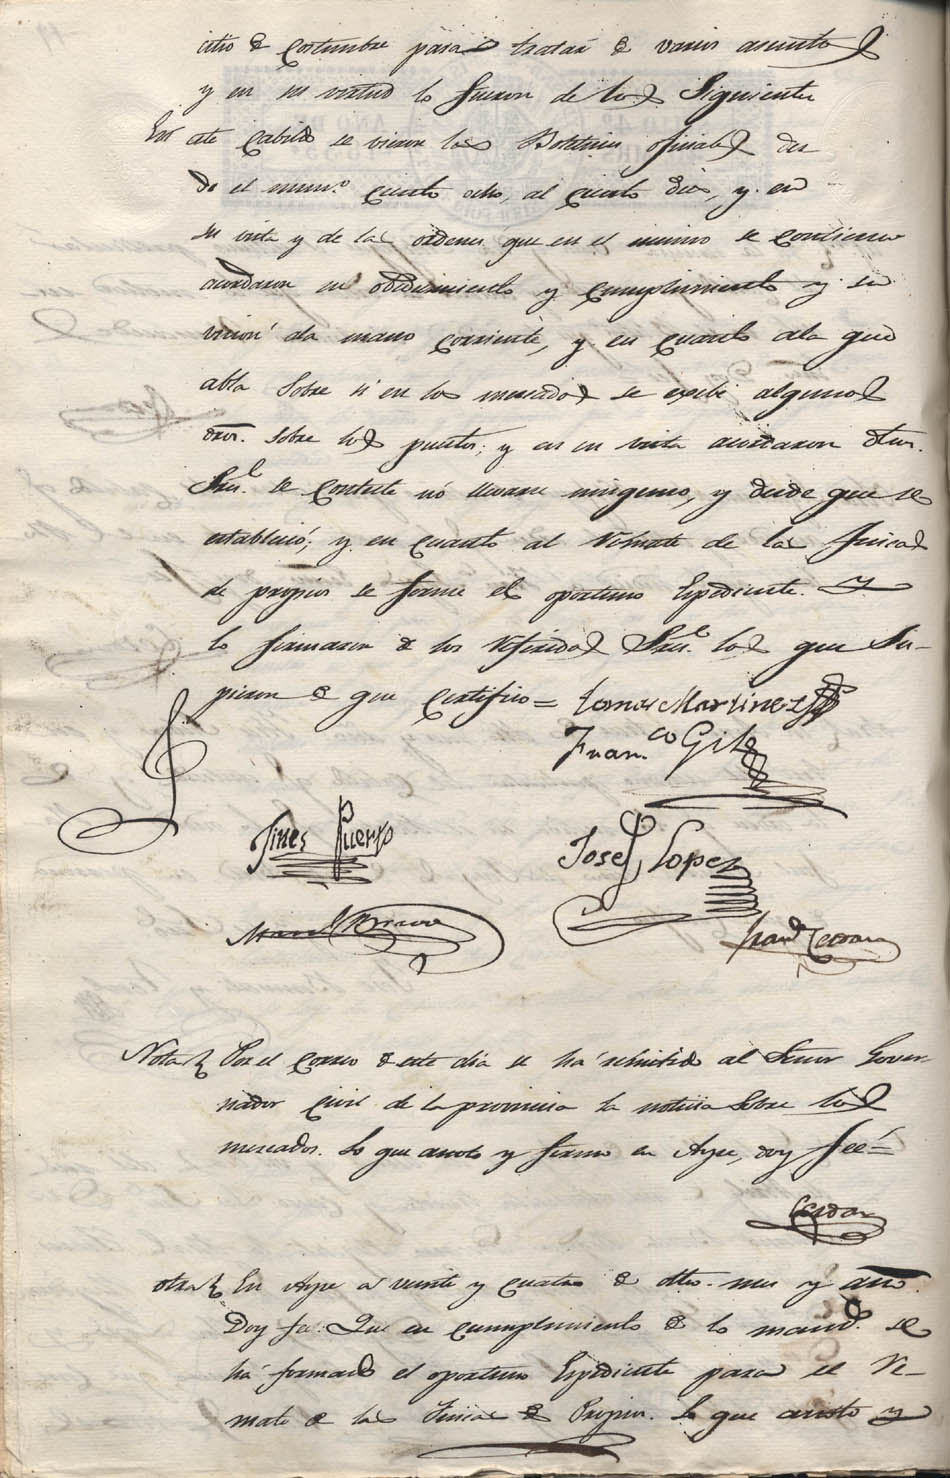 sitio de costumbre para tratar de varios asuntos
y en su virtud lo fueron de los Siguientes
En este Cabildo se vieron los Boletines oficiales des
de el num.o ciento ocho, al ciento dies, y en
su vista y de las ordenes que en el mismo se contienen
acordaron su obedecimiento y cumplimiento y su
union ala mano corriente, y en cuanto ala que
abla sobre si en los mercados se exije algunos
dros. sobre los puestos; y en su vista acordaron dhos.
Sres. se conteste nó llevarse ninguno, y desde que se
establecio; y en cuanto al Remate de las fincas
de propios se forme el oportuno Espediente. Y
lo firmaron de los referidos Sres. los que Su-
pieron de que Certifico =
Tomas Martinez
Fran.co Gil
Jines Puerto
Jose Lopez
Man.l Bravo
Nota Por el Correo de este dia se há remitido al Señor Gover
nador Civil de la provincia la noticia sobre los
mercados. Lo que anoto y firmo en Aspe, doy feé =
Cerdan
otra En Aspe a veinte y cuatro de dho. mes y año.
Doy fe: Que en cumplimiento de lo mand.o se
há formado el oportuno Espediente para el Re-
mate de las Fincas de Propios. Lo que anoto y